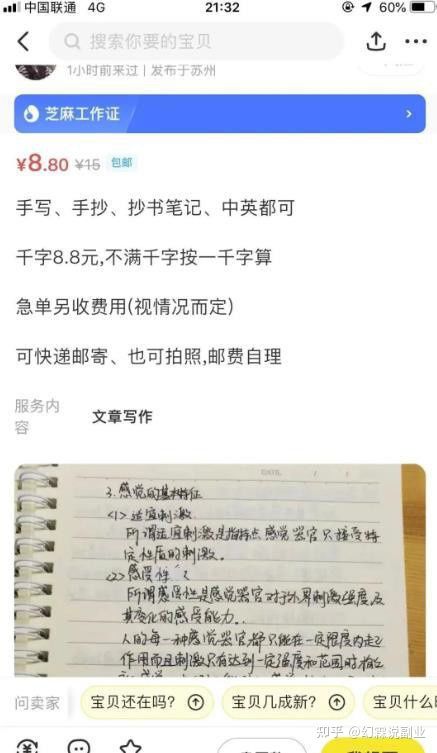 中国联通 4G 21:32 60%
搜索你要的宝贝
1小时前来过 | 发布于苏州
芝麻工作证
¥8.80 ¥15 包邮
手写、手抄、抄书笔记、中英都可
千字8.8元,不满千字按一千字算
急单另收费用(视情况而定)
可快递邮寄、也可拍照,邮费自理
服务内容 文章写作
DATE. / /
3.感觉的基本特征
<1>适宜刺激
所谓适宜刺激是指特点感觉器官只接受特
定性质的刺激.
<2>感受性
所谓感受性是感觉器官对于外界刺激强度及
其变化的感受能力..
人的每一种感觉器官都只能在一定限度内起
作用而且刺激只有达到一定强度和范围时
问卖家 宝贝还在吗? 宝贝几成新? 宝贝什么
知乎 @幻霖说副业